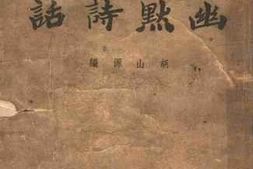 幽默詩話
胡山源編